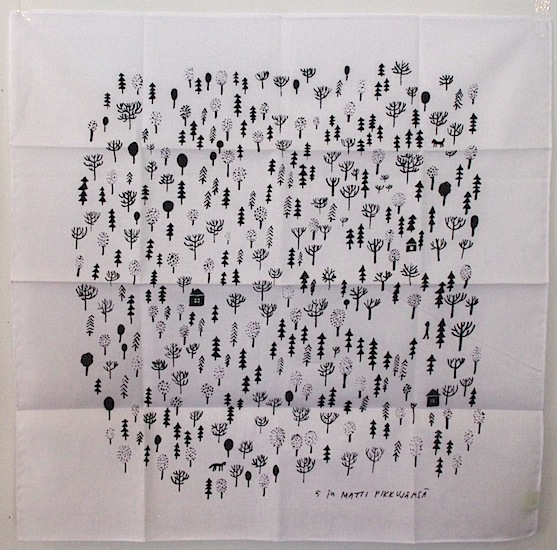 5 ja MATTI PIKKUJÄMSÄ